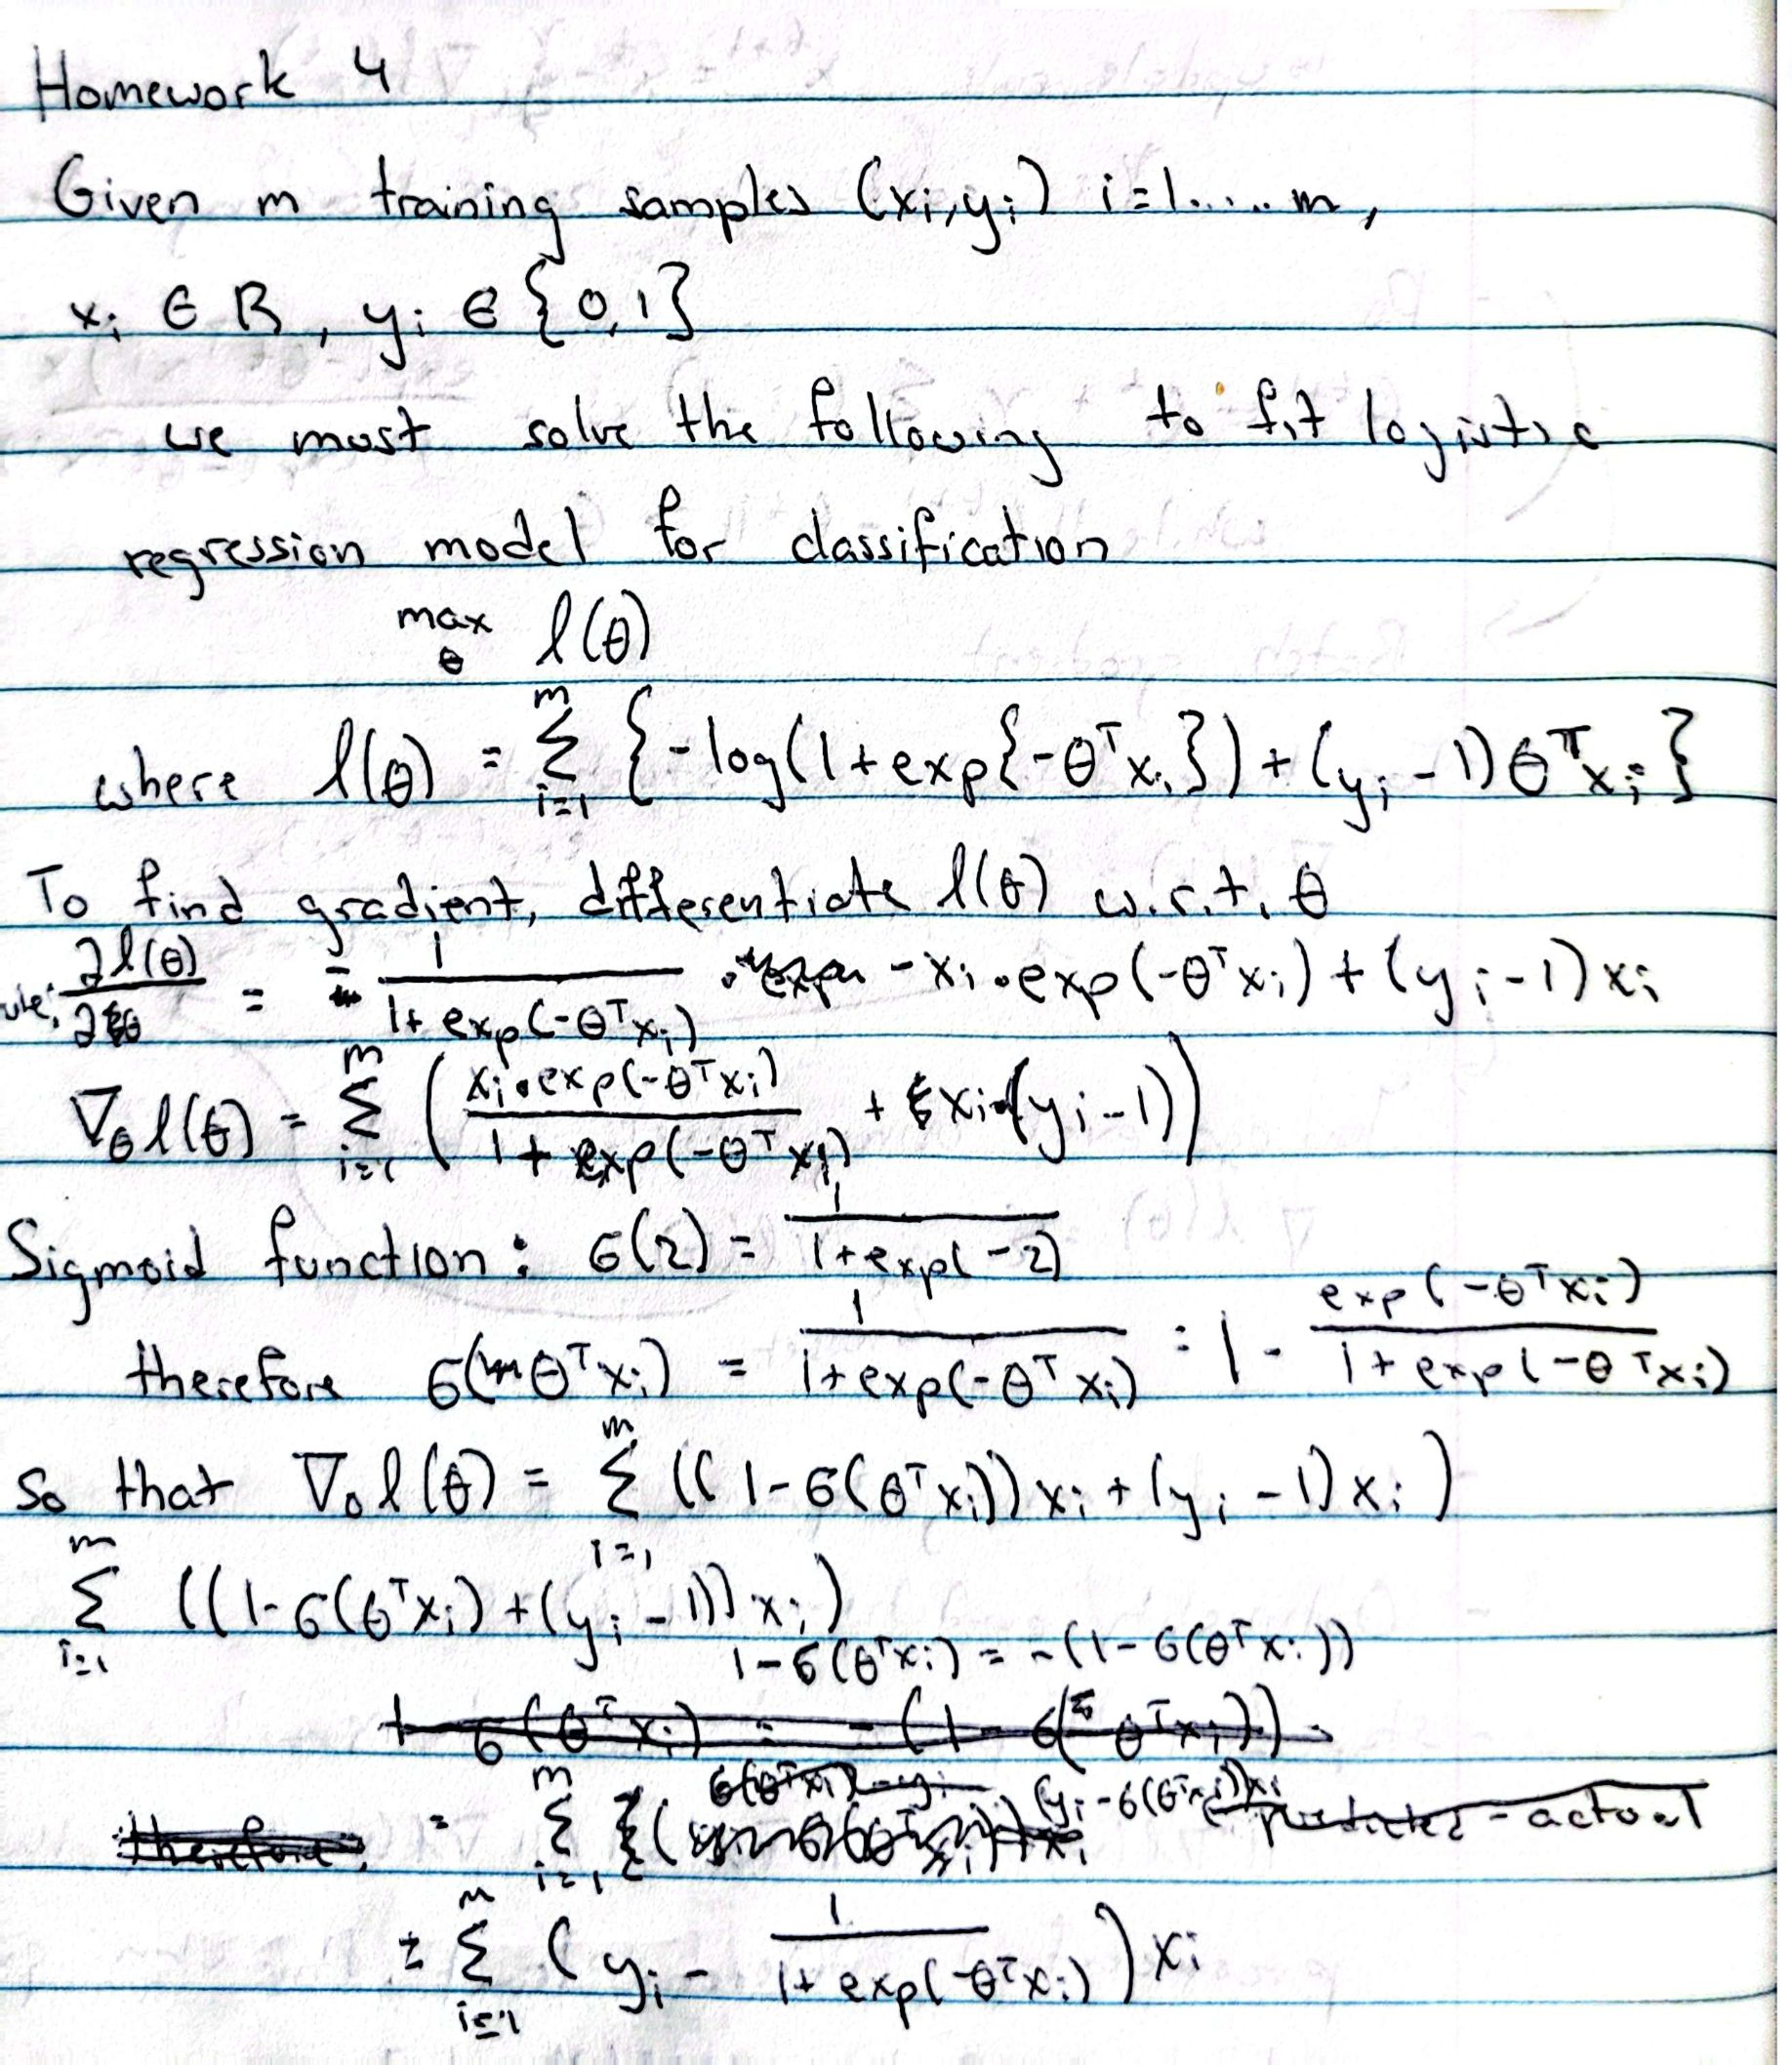 Homework 4
Given m training samples (xi, yi) i=1.....m,
xi ∈ R, yi ∈ {0,1}
we must solve the following to fit logistic
regression model for classification
max θ l(θ)
where l(θ) = Σ_{i=1}^{m} {-log(1+exp{-θᵀxi}) + (yi - 1)θᵀxi}
To find gradient, differentiate l(θ) w.r.t. θ
∂l(θ)/∂θ = - 1/(1+exp(-θᵀxi)) · -xi·exp(-θᵀxi) + (yi-1)xi
∇θ l(θ) = Σ_{i=1}^{m} ( xi·exp(-θᵀxi)/(1+exp(-θᵀxi)) + xi·(yi-1))
Sigmoid function: σ(z) = 1/(1+exp(-z))
therefore σ(θᵀxi) = 1/(1+exp(-θᵀxi)) = 1 - exp(-θᵀxi)/(1+exp(-θᵀxi))
So that ∇θ l(θ) = Σ_{i=1}^{m} ((1-σ(θᵀxi))xi + (yi-1)xi)
Σ_{i=1}^{m} ((1-σ(θᵀxi) + (yi-1))xi)
1-σ(θᵀxi) = -(1-σ(θᵀxi))
= Σ_{i=1}^{m} (yi-σ(θᵀxi))xi predicted - actual
= Σ_{i=1}^{m} (yi - 1/(1+exp(-θᵀxi)))xi